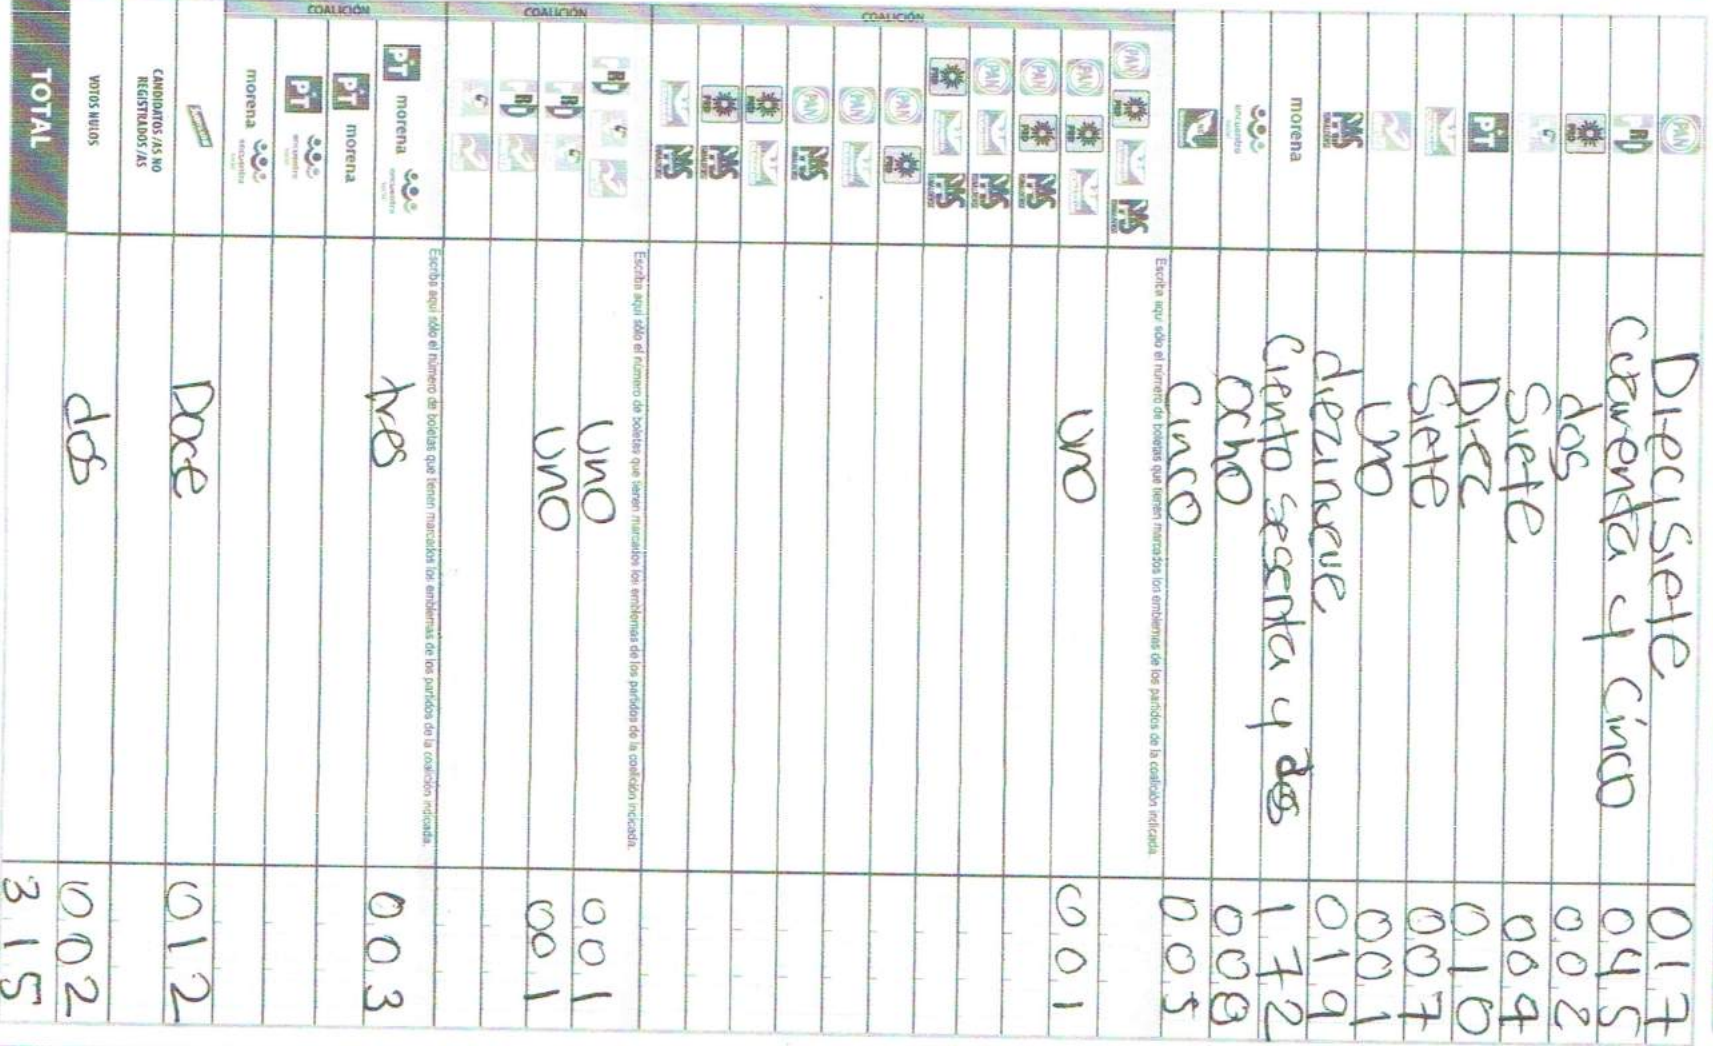 PAN
Diecisiete 017
PRD
Cuarenta y Cinco 045
PRD
dos 002
Siete 007
PT
Diez 010
Siete 007
Uno 001
MAS
diezinueve 019
morena
Ciento Secenta y dos 172
encuentro
Ocho 008
Cinco 005
COALICIÓN
Escriba aquí sólo el número de boletas que tienen marcados los emblemas de los partidos de la coalición indicada.
PAN PRD
PAN PRD
uno 001
PAN PRD
PAN
PRD
PAN PRD
PAN
PAN
PRD
PRD
COALICIÓN
Escriba aquí sólo el número de boletas que tienen marcados los emblemas de los partidos de la coalición indicada.
Uno 001
Uno 001
COALICIÓN
Escriba aquí sólo el número de boletas que tienen marcados los emblemas de los partidos de la coalición indicada.
PT morena encuentro social
tres 003
PT morena
PT encuentro social
morena encuentro social
Doce 012
CANDIDATOS /AS NO REGISTRADOS /AS
VOTOS NULOS
dos 002
TOTAL
315